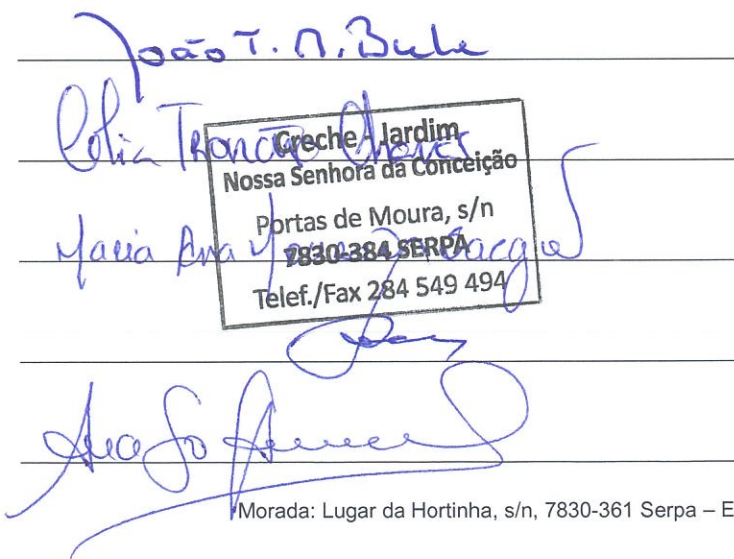 João T. M. Bule
Célia Troncão Chaves
Creche - Jardim
Nossa Senhora da Conceição
Portas de Moura, s/n
7830-384 SERPA
Telef./Fax 284 549 494
Maria Ana
Morada: Lugar da Hortinha, s/n, 7830-361 Serpa – E